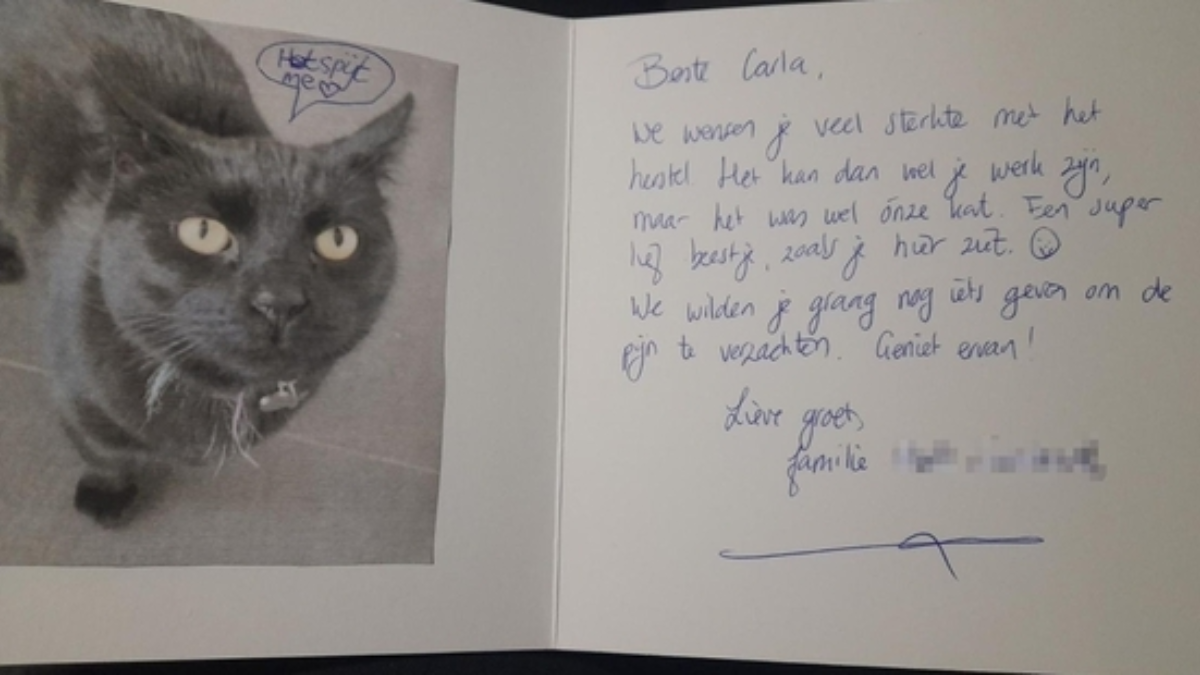 Het spijt
me
Beste Carla,
We wensen je veel sterkte met het
herstel. Het kan dan wel je werk zijn,
maar het was wel ónze kat. Een super
lief beestje, zoals je hier ziet.
We wilden je graag nog iets geven om de
pijn te verzachten. Geniet ervan!
Lieve groet,
familie